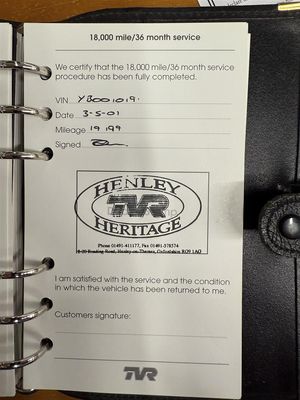 18,000 mile/36 month service
We certify that the 18,000 mile/36 month service
procedure has been fully completed.
VIN YB001019.
Date 3-5-01
Mileage 19 199
Signed
HENLEY
TVR
HERITAGE
Phone 01491-411177, Fax 01491-578574
Reading Road, Henley-on-Thames, Oxfordshire RG9 1AG
I am satisfied with the service and the condition
in which the vehicle has been returned to me.
Customers signature:
TVR